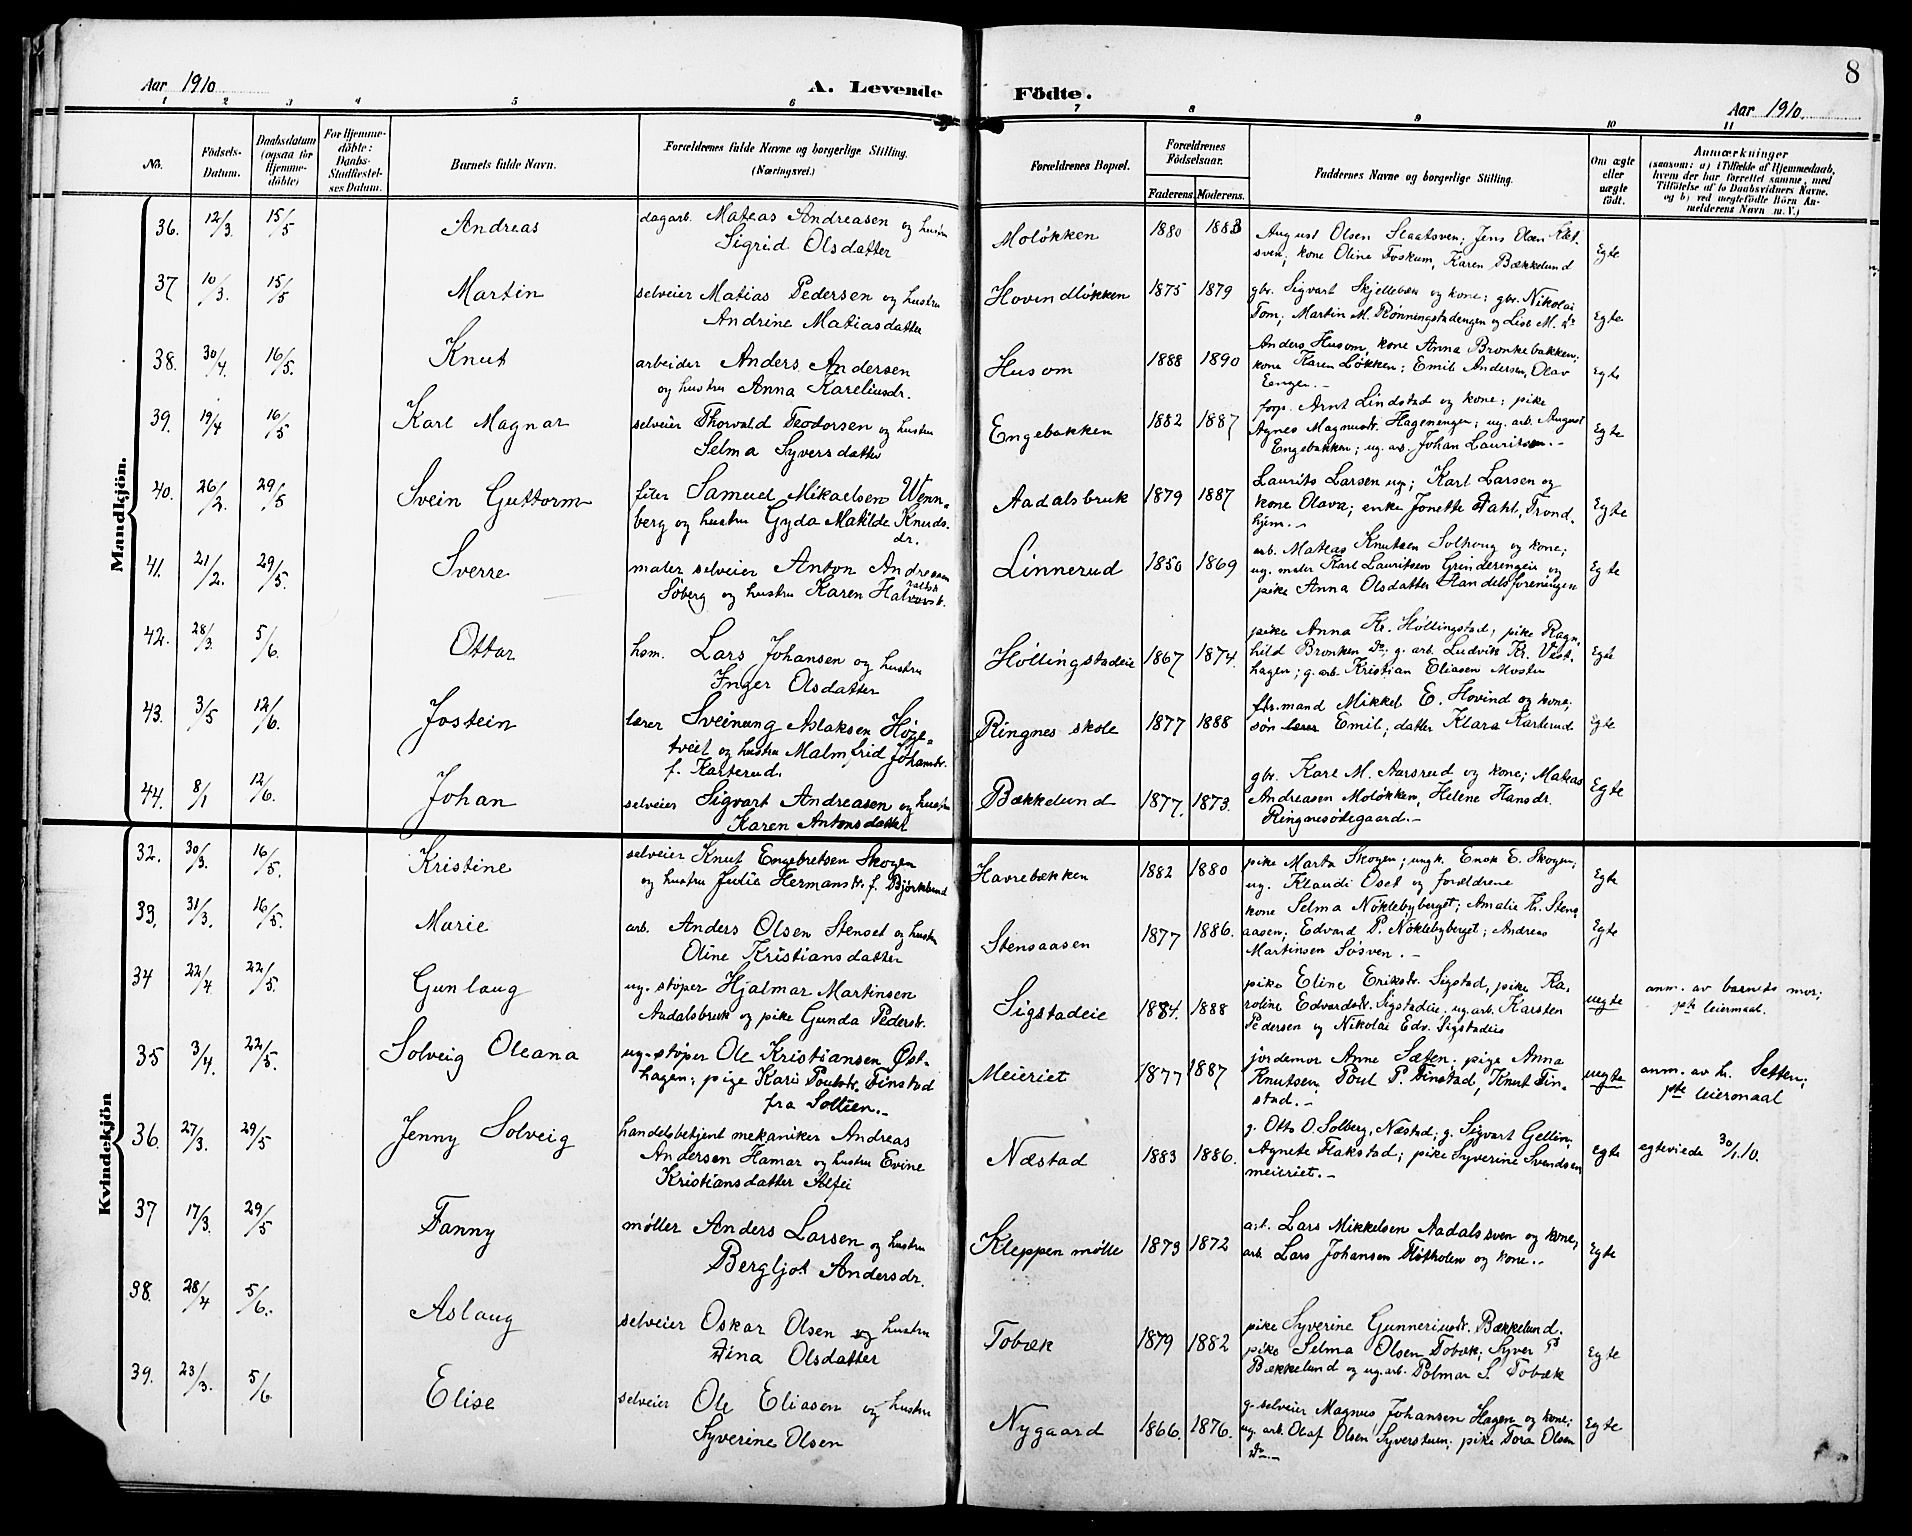 8
Aar 1910
A. Levende Födte.
Aar 1910.
1 2 3 4 5 6 7 8 9 10 11
No. Födsels-Datum. Daabsdatum (ogsaa for Hjemme-döbte) For Hjemme-döbte: Daabs-Stadfæstel-ses Datum. Barnets fulde Navn. Forældrenes fulde Navne og borgerlige Stilling. (Næringsvei.) Forældrenes Bopæl. Forældrenes Födselsaar. Faderens. Moderens. Faddernes Navne og borgerlige Stilling. Om ægte eller uægte födt.
Anmærkninger
(saasom: a) i Tilfælde af Hjemmedaab,
hvem der har forrettet samme, med
Tilföielse af to Daabsvidners Navne,
og b) ved uegtefödte Börn An-
melderens Navn m. V.)
Mandkjön.
36. 12/3. 15/5 Andreas dagarb. Mateas Andreasen og hustru
Sigrid Olsdatter
Moløkken 1880 1883 August Olsen Slaatsven; Jens Olsen
sven, kone Oline Foskum, Karen Bækkelund
Egte
37 10/3. 15/5 Martin selveier Matias Pedersen og hustru
Andrine Matiasdatter
Hovindløkken 1875 1879 gbr. Sigvart Skjellebæn og kone; gbr. Nikolai
Tom; Martin M. Rønningstadengen og Lise M. do
Egte
38. 30/4. 16/5. Knut arbeider Anders Andersen
og hustru Anna Kareliusdr.
Husom 1888 1890 Anders Husom, kone Anna Bronkebakken;
kone Karen Løkken; Emil Andersen, Olav
Eengen.-
Egte
39. 19/4 16/5 Karl Magnar selveier Thorvald Teodorsen og hustru
Selma Syversdatter
Engebakken 1882 1887 forp. Arnt Lindstad og kone; pike
Agnes Magnusdr. Hagenengen; ug. arb. August
Engebakken; ug. arb. Johan Lauritsen.-
Egte
40. 26/2. 29/5 Svein Guttorm filer Samuel Mikaelsen Wenn-
berg og hustru Gyda Matilde Knuds.
dr.
Aadalsbruk 1879 1887 Laurits Larsen ug; Karl Larsen og
kone Olava; enke Jonette Dahl, Trond-
hjem.-
Egte
41. 21/2. 29/5. Sverre maler selveier Anton Andreasen
Søberg og hustru Karen Halvorsdr.
Linnerud 1850 1869 arb. Mateas Knutsen Solhaug og kone;
ug. maler Karl Lauritsen Grinderengen og
pike Anna Olsdatter Handelsforeningen
Egte
42. 28/3. 5/6. Ottar hsm. Lars Johansen og hustru
Inger Olsdatter
Høllingstadeie 1867 1874. pike Anna Kr. Høllingstad; pike Ragn-
hild Bronken do; g. arb. Ludvik Kr. Vest-
hagen; g. arb. Kristian Eliasen Mostu
Egte
43. 3/5 12/6. Jostein lærer Sveinung Aslaksen Høge-
tveit og hustru Malmfrid Johansdr.
f. Karterud.
Ringnes skole 1877 1888 ftr.mand Mikkel E. Hovind og kone;
søn lærer Emil, datter Klara Karterud
Egte
44. 8/1 12/6. Johan selveier Sigvart Andreasen og hustru
Karen Antonsdatter
Bækkelund 1877. 1873. gbr. Karl M. Aarsrud og kone; Mateas
Andreasen Moløkken, Helene Hansdr.
Ringnesødegaard.-
Egte
Kvindekjön
32. 30/3. 16/5. Kristine selveier Knut Engebretsen Skogen
og hustru Julie Hermansdr. f. Bjørklund
Havrebækken 1882 1880 pike Marta Skogen; ungk. Enok E. Skogen,
ug. Klaudi Oset og forældrene
Egte
33, 31/3. 16/5. Marie arb. Anders Olsen Stenset og hustru
Oline Kristiansdatter
Stensaasen 1877 1886. kone Selma Nøklebyberget; Amalie Kr. Stens-
aasen; Edvard P. Nøklebyberget; Andreas
Martinsen Søsven.-
Egte
34 22/4. 22/5. Gunlaug ug. støper Hjalmar Martinsen
Aadalsbruk og pike Gunda Pedersdr.
Sigstadeie 1884. 1888 pike Eline Eriksdr. Sigstad, pike Ka-
roline Edvardsdr. Sigstadeie. ug. arb. Karsten
Pedersen og Nikolai Edv. Sigstadeie
uegte anm. av barnets mor;
1ste leiermaal.
35 3/4. 22/5. Solveig Oleana ug. støper Ole Kristiansen Øst-
hagen; pige Kari Poulsdr. Finstad
fra Soltien.-
Meieriet 1877 1887 jordemor Anne Sæten. pige Anna
Knutsen, Poul P. Finstad, Knut Fin-
stad.-
uegte anm. av hr. Setten;
1ste leiermaal
36. 27/3. 29/5 Jenny Solveig handelsbetjent mekaniker Andreas
Andersen Hamar og hustru Evine
Kristiansdatter Alfei
Næstad 1883 1886. g. Otto O. Solberg, Næstad; g. Sigvart Gellin;
Agnete Flakstad; pike Syverine Svendsen
meieriet.-
egte egteviede 30/1.10.
37 17/3. 29/5 Fanny møller Anders Larsen og hustru
Bergljot Andersdr.
Kleppen mølle 1873 1872 arb. Lars Mikkelsen Aadalssven og kone,
arb. Lars Johansen Fløtholen og kone.-
Egte
38. 28/4 5/6. Aslaug selveier Oskar Olsen og hustru
Dina Olsdatter
Tobæk 1879 1882 pike Syverine Gunneriusdr. Bækkelund.
pike Selma Olsen Tobæk; Syver
Bækkelund og ug. arb. Polmar S. Tobæk
Egte
39. 23/3. 5/6 Elise selveier Ole Eliasen og hustru
Syverine Olsen
Nygaard 1866. 1876. g. selveier Magnus Johansen Hagen og kone;
ug. arb. Olaf Olsen Syverstuen; pike Tora Olsen
do.-
Egte